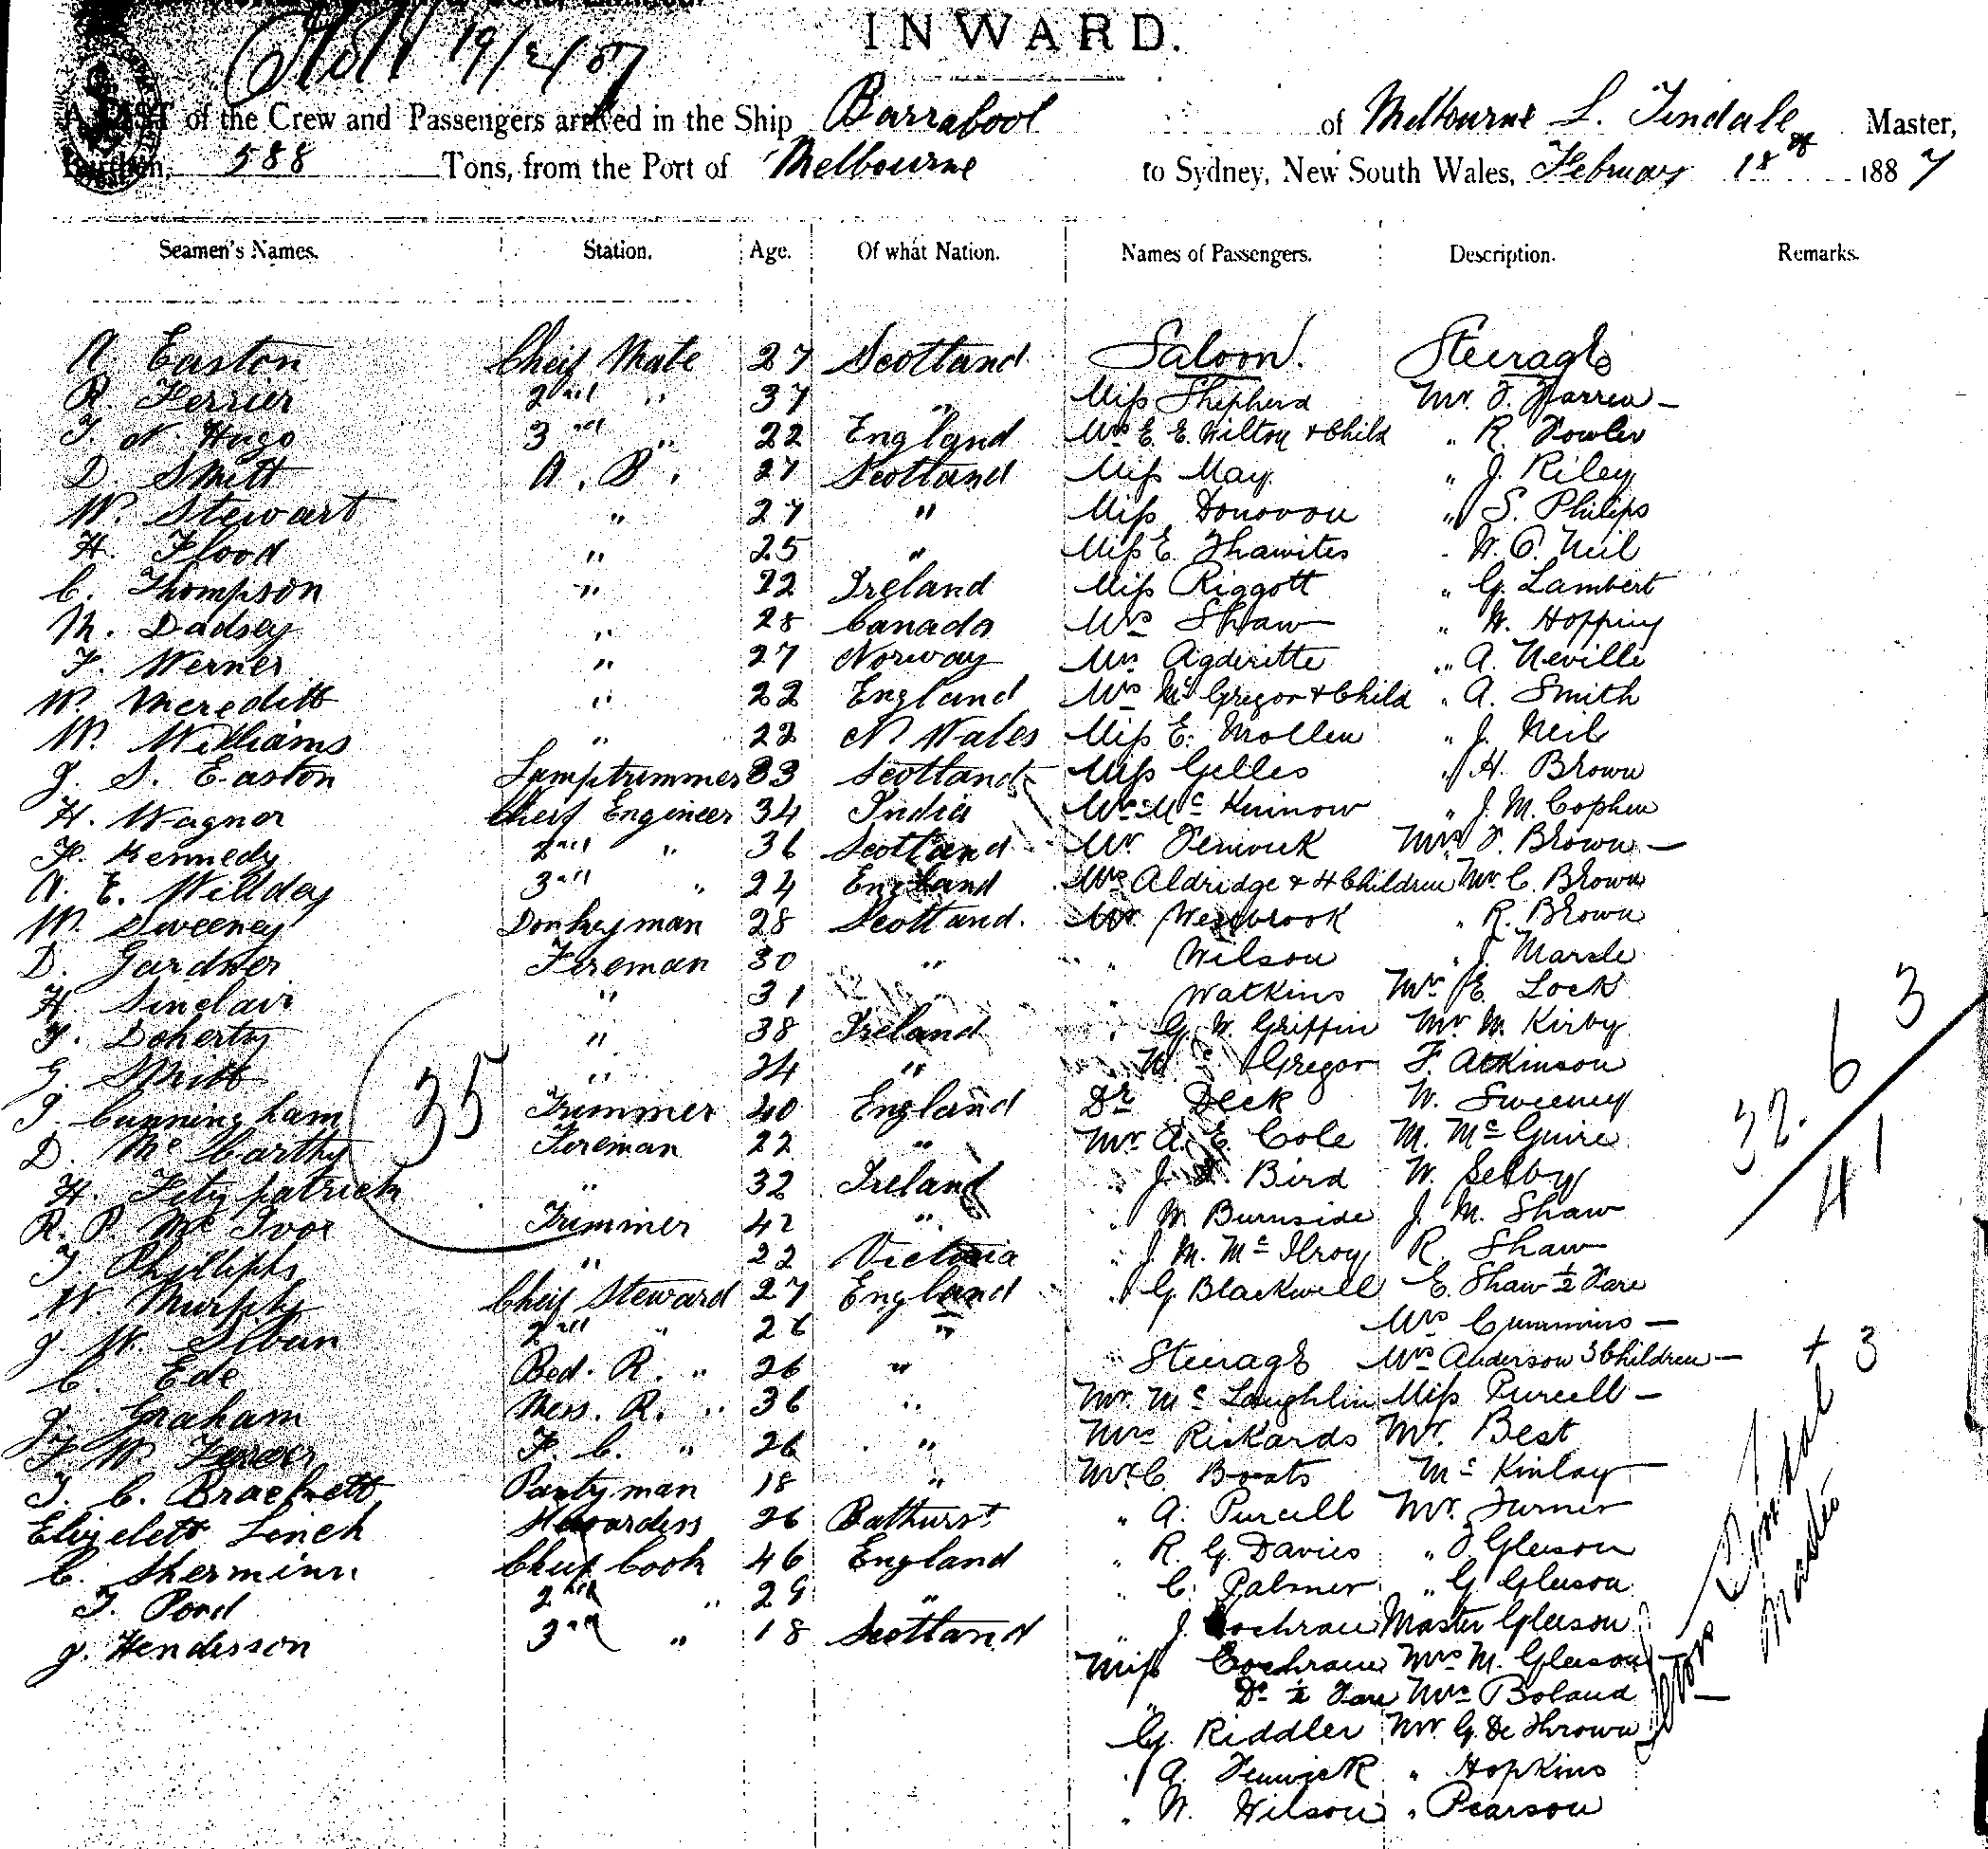 19/2/87
INWARD.
A LIST of the Crew and Passengers arrived in the Ship Barrabool of Melbourne L. Tindale Master,
Burthen, 588 Tons, from the Port of Melbourne to Sydney, New South Wales, February 18th 1887
Seamen's Names. Station. Age. Of what Nation. Names of Passengers. Description. Remarks.
A. Easton Cheif Mate 27 Scotland Saloon. Steerage
R. Ferrier 2nd " 37 " Miss Shepherd Mr. F. Warren —
T. N. Hugo 3rd " 22 England Mrs E. E. Wilton & Child " R. Fowler
D. Smitt A. B. 27 Scotland Miss May " J. Riley
W. Stewart " 27 " Miss Donovon " S. Philips
H. Flood " 25 " Miss E. Thawites " W. O. Neil
C. Thompson " 22 Ireland Miss Riggott " G. Lambert
M. Dadsey " 28 Canada Mrs Shaw " W. Hopping
F. Werner " 27 Norway Mrs Agderitte " A. Neville
W. Mereditt " 22 England Mrs Mc Gregor & Child " A. Smith
W. Williams " 22 N. Wales Miss E. Mollen " J. Neil
J. S. Easton Lamptrimmer 33 Scotland Miss Gelles " H. Brown
H. Wagnor Cheif Engineer 34 India Mc Kinnow " J. M. Cophen
F. Kennedy 2nd " 36 Scotland Mr Fenwick Mrs F. Brown —
A. E. Willday 3rd " 24 England Mrs Aldridge & 4 Children Mr. C. Brown
W. Sweeney Donkeyman 28 Scotland. Mr. Westbrook " R. Brown
D. Gardner Fireman 30 " " Wilson " J. Marsle
H. Sinclair " 31 " Watkins Mr E. Lock
F. Doherty " 38 Ireland " G. W. Griffin Mr W. Kirby
G. Smitt " 24 " Mc Gregor F. Atkinson
T. Cunningham 35 Trimmer 40 England Dr Deck W. Sweeney
D. Mc Carthy Fireman 22 " Mr A. E. Cole M. Mc Guire
H. Fitzpatrick " 32 Ireland " J. Bird W. Selby
R. P. Mc Ivor Trimmer 42 " " W. Burnside J. M. Shaw
T. Phillips " 22 Victoria " J. M. Mc Ilroy R. Shaw
W. Murphy Cheif Steward 27 England " G Blackwell E. Shaw ½ Fare
J. W. Sloan 2nd " 26 " Mrs Cummins —
C. Ede Bed. R. " 26 " Steerage Mrs Anderson 3 Children —
J. Graham Mess. R. " 36 " Mr. Mc Laughlin Miss Purcell —
F. W. F. C. " 26 " Mrs Rickards Mr. Best
T. C. Brackett Pantyman 18 " Mr C. Boats Mc Kinlay
Elizelett Linch Stewardess 26 Bathurst " A. Purcell Mr. Turner
C. Cheif Cook 46 England " R. G. Davies " J Gleeson
T. Pond 2nd " 29 " " C. Palmer " G Gleeson
J. Henderson 3rd " 18 Scotland " J. Cochrane Master Gleeson
Miss Cochrane Mrs M. Gleeson
" Do ½ Fare Mrs Boland —
G. Riddler Mr G. De Thrown
" A. Fenwick " Hopkins
" W. Wilson " Pearson
3
6
32.
1
4
+ 3
Tindale
Master